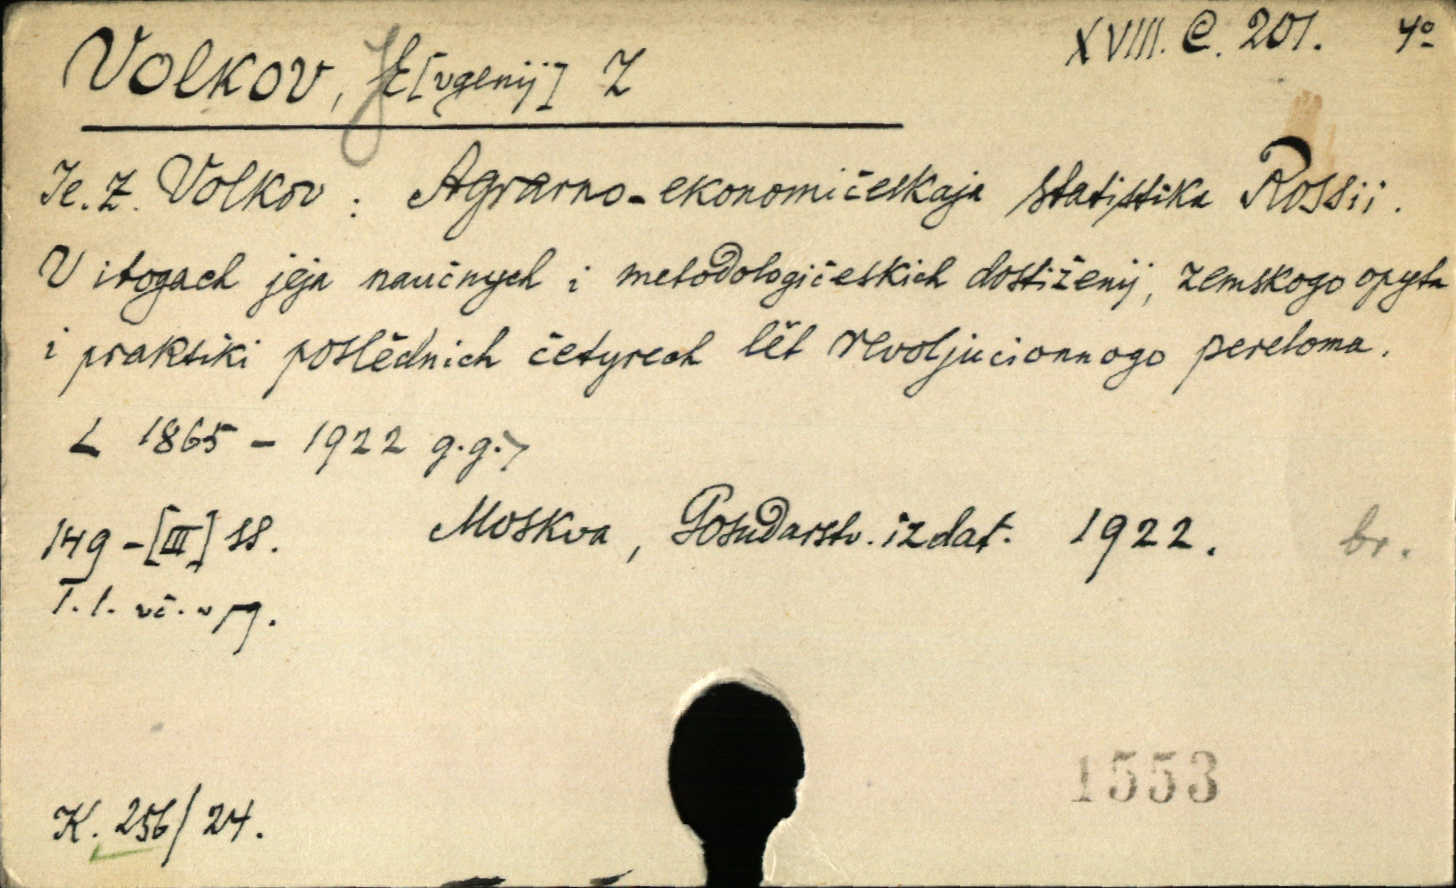 XVIII. C. 201. 4º
Volkov, JE[vgenij] Z
Je. Z. Volkov : Agrarno-ekonomičeskaja statistika Rossii.
V itogach jeja naučnych i metodologičeskich dostiženij, zemskogo opyta
i praktiki poslědnich četyrech lět revoljucionnogo pereloma.
< 1865 - 1922 g.g. >
149 - [III] ss. Moskva, Gosudarstv. izdat. 1922. br.
T. l. vč. v pg.
1553
K. 256/24.